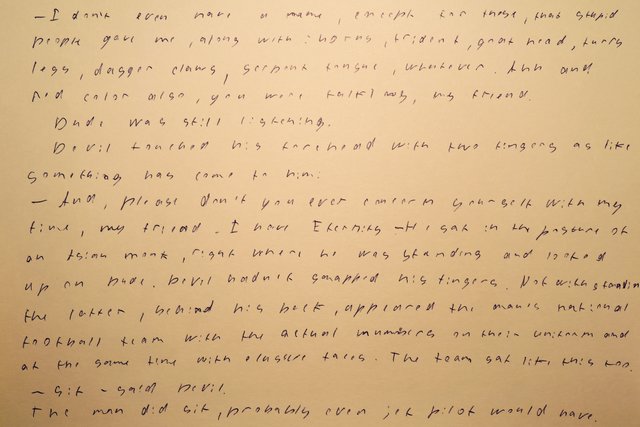 - I don't even have a name, except for these, that stupid
people gave me, along with: horns, trident, goat head, furry
legs, dagger claws, serpent tongue, whatever. Ahh and
red color also, you were talking, my friend.
Dude was still listening.
Devil touched his forehead with two fingers as like
something has come to him:
- And, please don't you ever concern yourself with my
time, my friend. I have Eternity - He sat in the posture of
an Asian monk, right where he was standing and looked
up on Dude. Devil hadn't snapped his fingers. Notwithstandin
the latter, behind his back, appeared the man's national
football team with the actual numbers on their uniform and
at the same time with elusive faces. The team sat like this too.
- Sit - said Devil.
The man did sit, probably even jet pilot would have.